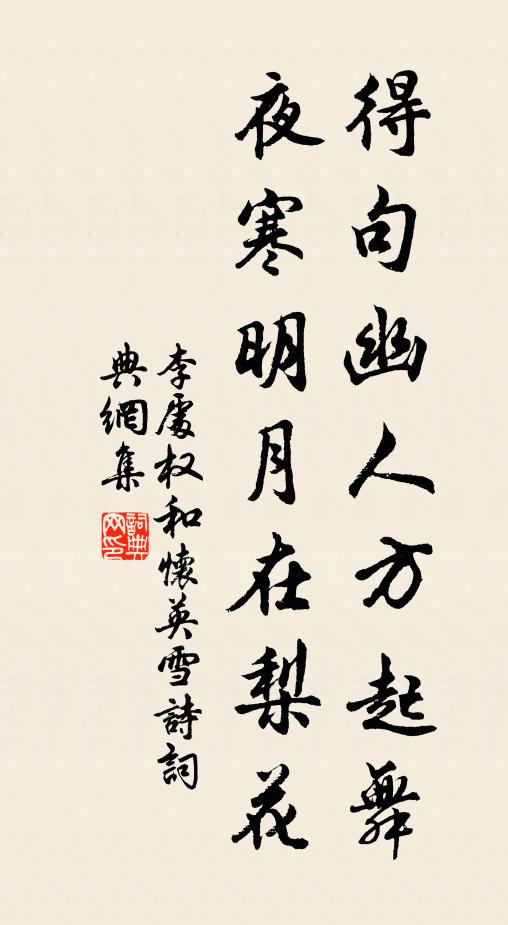 得句幽人方起舞
夜寒明月在梨花
李處权和懷英雪詩詞
典網集
詞典
网印